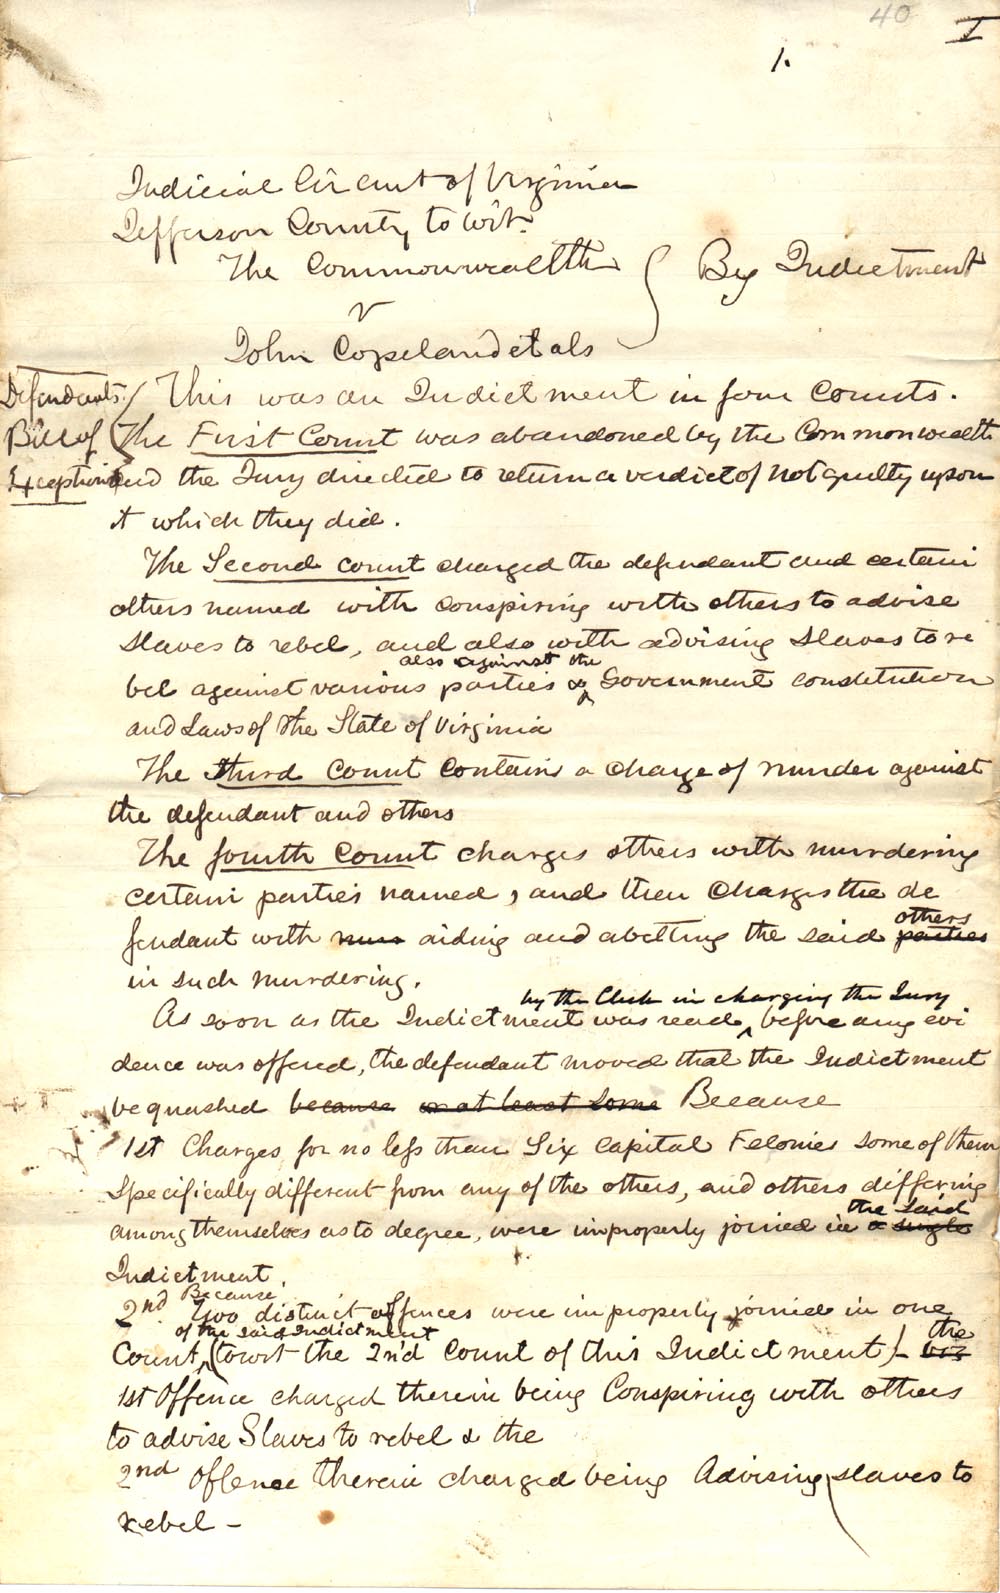 40
I
1.
Judicial Circuit of Virginia
Jefferson County to wit.
The Commonwealth
v
By Indictment
John Copeland et als
Defendants
Bill of
Exceptions
This was an Indictment in four Counts.
The First Count was abandoned by the Commonwealth
and the Jury directed to return a verdict of not guilty upon
it which they did.
The Second count charged the defendant and certain
others named with conspiring with others to advise
slaves to rebel, and also with advising slaves to re
also against the
bel against various parties & Government constitution
and Laws of the State of Virginia
The third Count Contains a charge of murder against
the defendant and others
The fourth Count charges others with murdering
certain parties named, and then Charges the de
others
fendant with mur aiding and abetting the said parties
in such murdering.
by the Clerk in charging the Jury
As soon as the Indictment was read, before any evi
dence was offered, the defendant moved that the Indictment
be quashed because or at least some Because
1st Charges for no less than Six Capital Felonies some of them
Specifically different from any of the others, and others differing
the said
among themselves as to degree, were improperly joined in a single
Indictment.
Because
2nd Two distinct offences were improperly joined in one
of the said Indictment
the
Count, (towit the 2nd Count of this Indictment) -
1st Offence charged therein being Conspiring with others
to advise Slaves to rebel & the
2nd Offence therein charged being Advising slaves to
rebel -